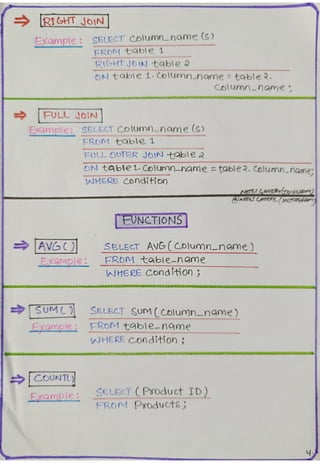 ⇒ RIGHT JOIN
Example: SELECT column_name(s)
FROM table 1
RIGHT JOIN table 2
ON table 1.column_name = table 2.
column_name;
⇒ FULL JOIN
Example: SELECT column_name(s)
FROM table 1
FULL OUTER JOIN table 2
ON table1.column_name = table2.column_name;
WHERE condition
FUNCTIONS
⇒ AVG()
SELECT AVG(column_name)
Example: FROM table_name
WHERE condition;
⇒ SUM()
SELECT SUM(column_name)
Example: FROM table_name
WHERE condition;
⇒ COUNT()
Example: SELECT(Product ID)
FROM Products;
4.